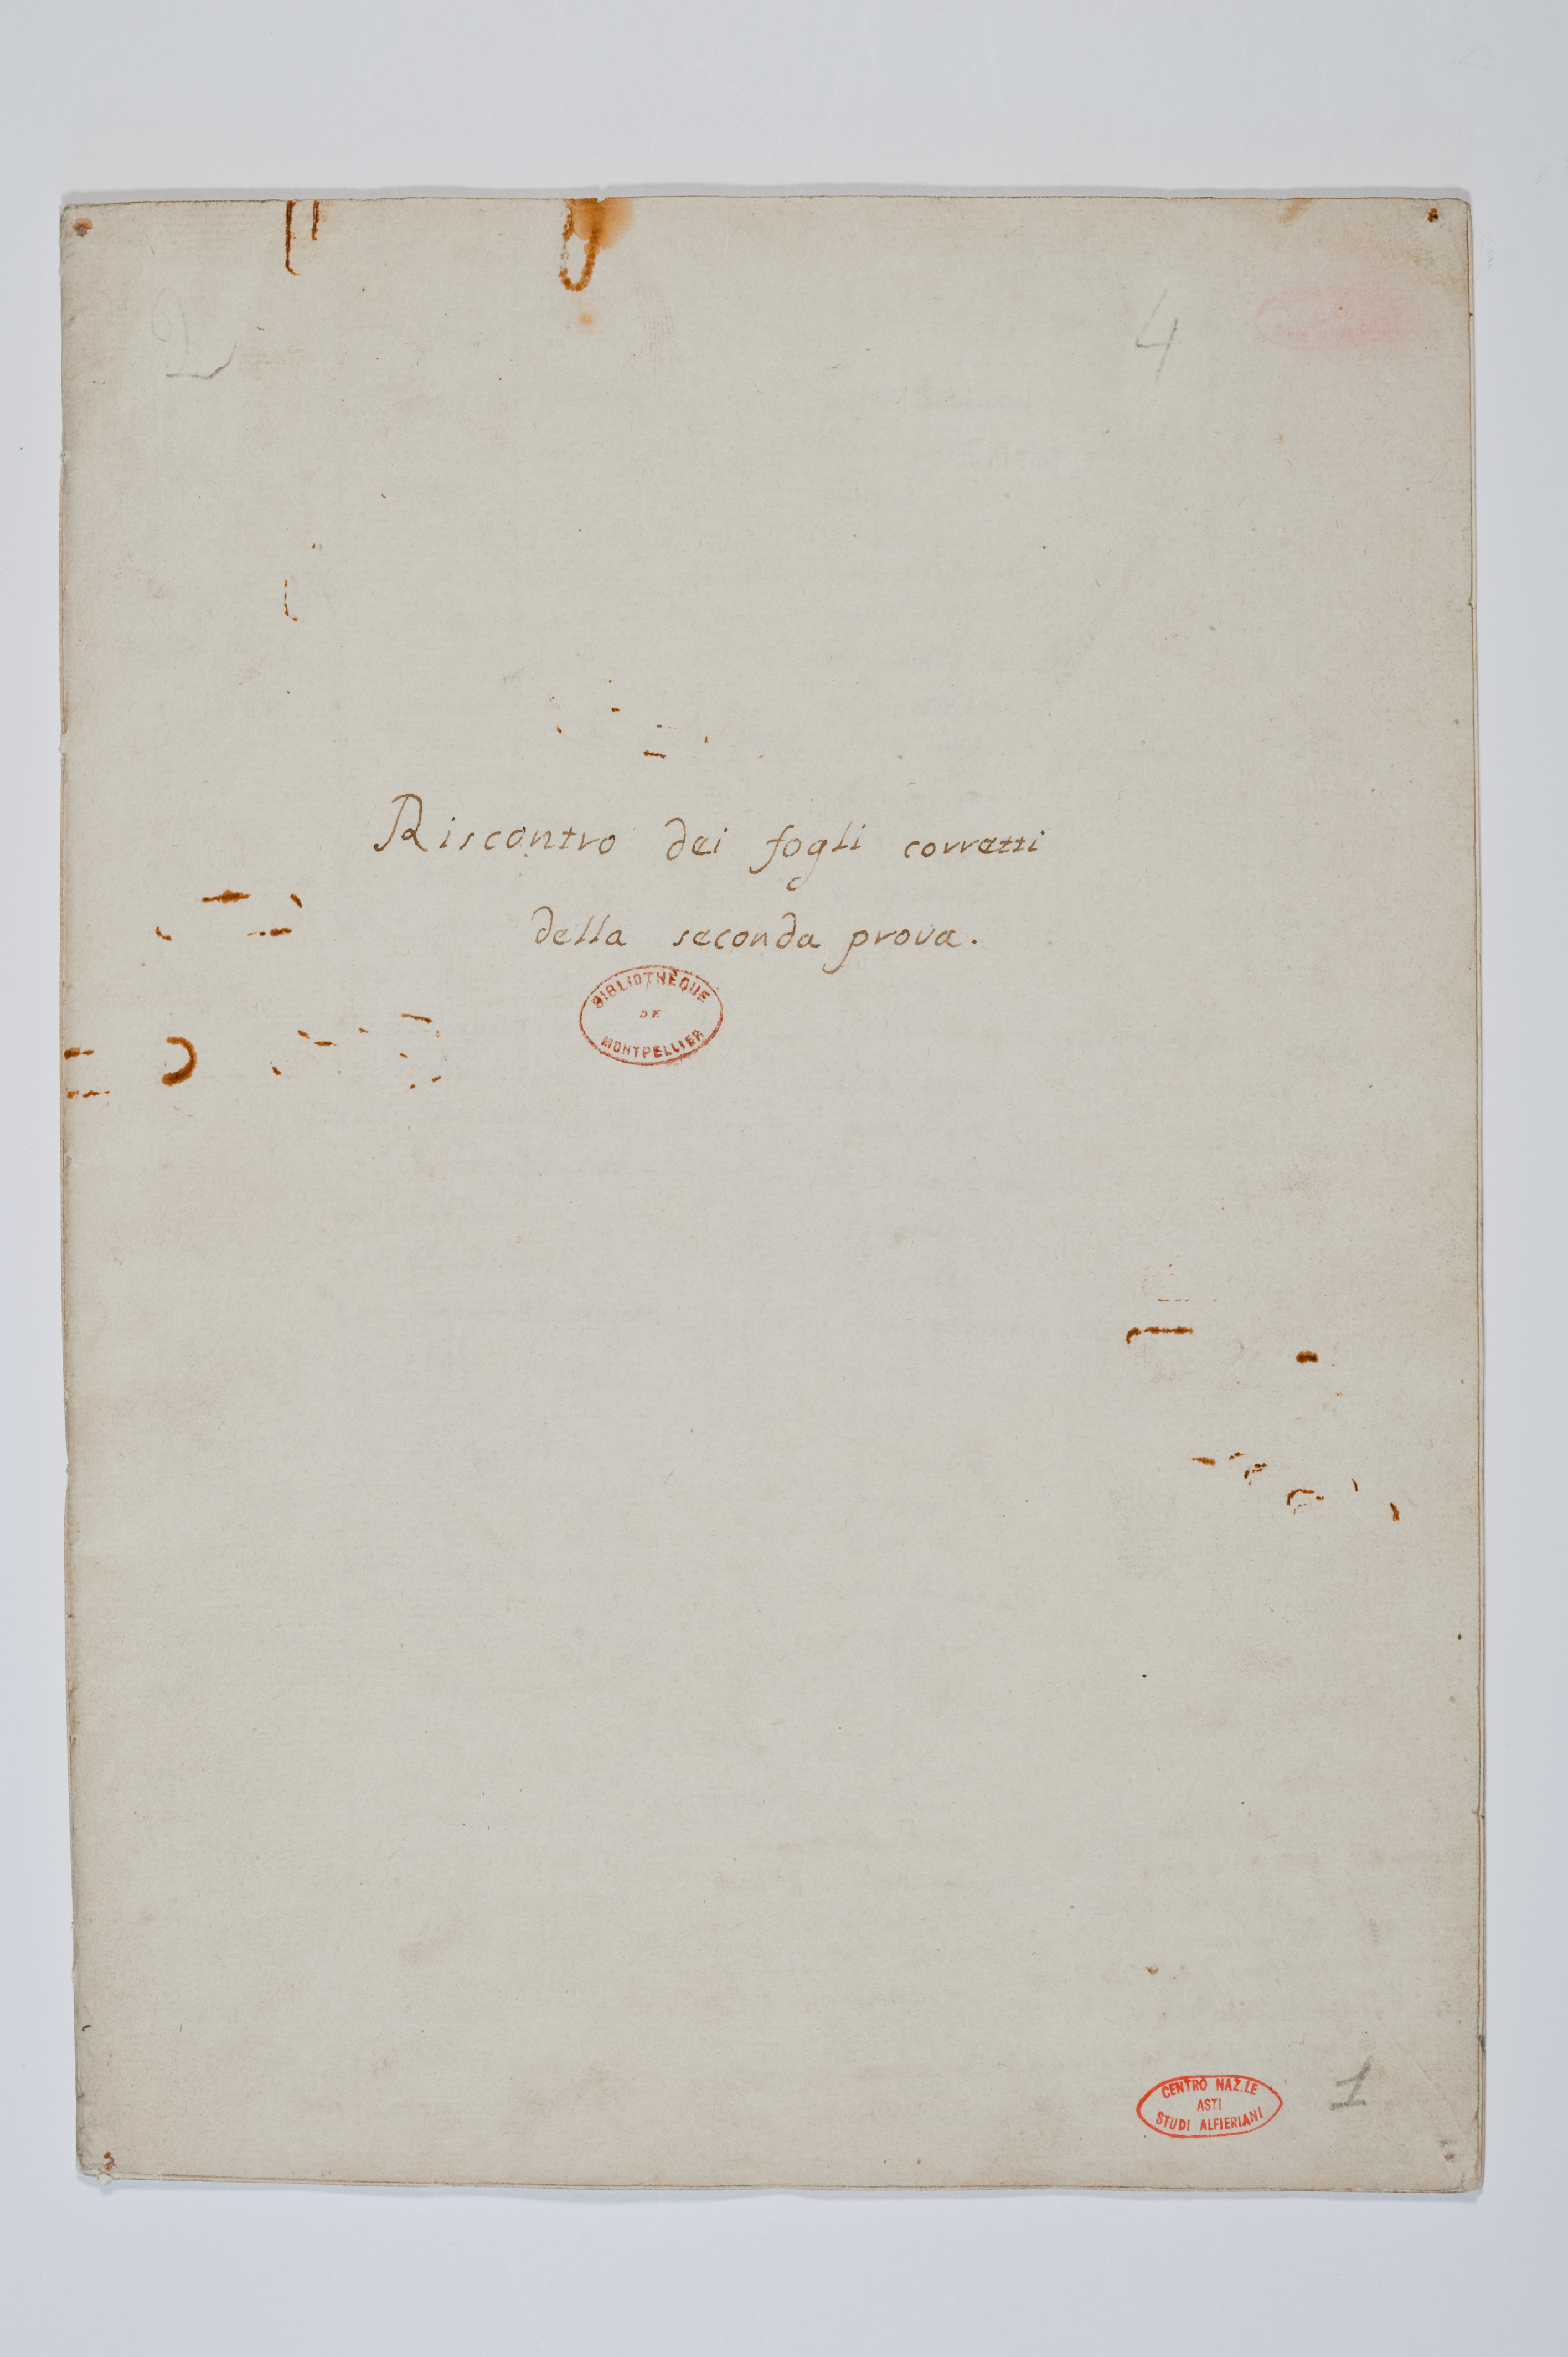 2
4
Riscontro dei fogli corretti
della seconda prova.
BIBLIOTHÈQUE
DE
MONTPELLIER
CENTRO NAZ.LE
ASTI
STUDI ALFIERIANI
1